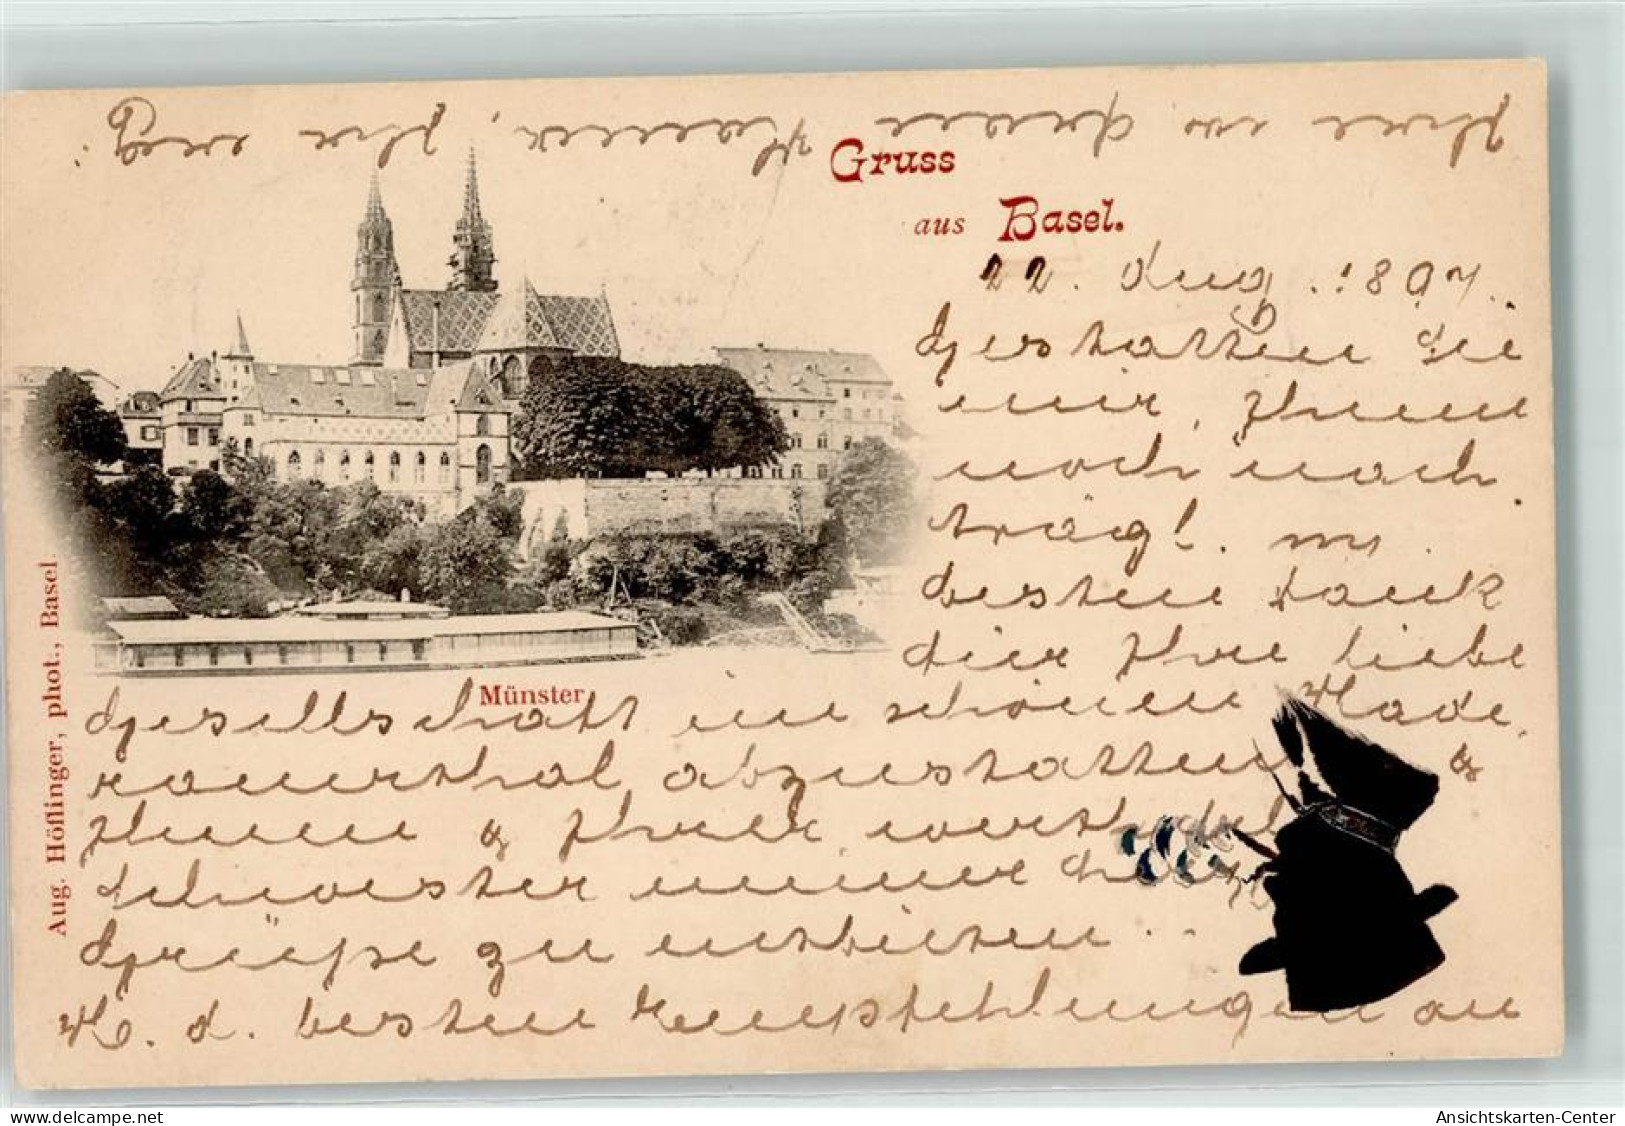 Gruss
aus Basel.
22. Aug. 1897.
Gestatten Sie
mir, Ihnen
noch nach
träg!. m.
besten Dank
für Ihre liebe
Gesellschaft im schönen Made
ranerthal abzustatten &
Ihnen & Ihrer werth
Schwester meiner
Grüsse zu entbieten
M. d. besten Empfehlungen an
Ihre w
Ihr erg
Münster
Aug. Höflinger, phot., Basel
delcampe.net
Ansichtskarten-Center